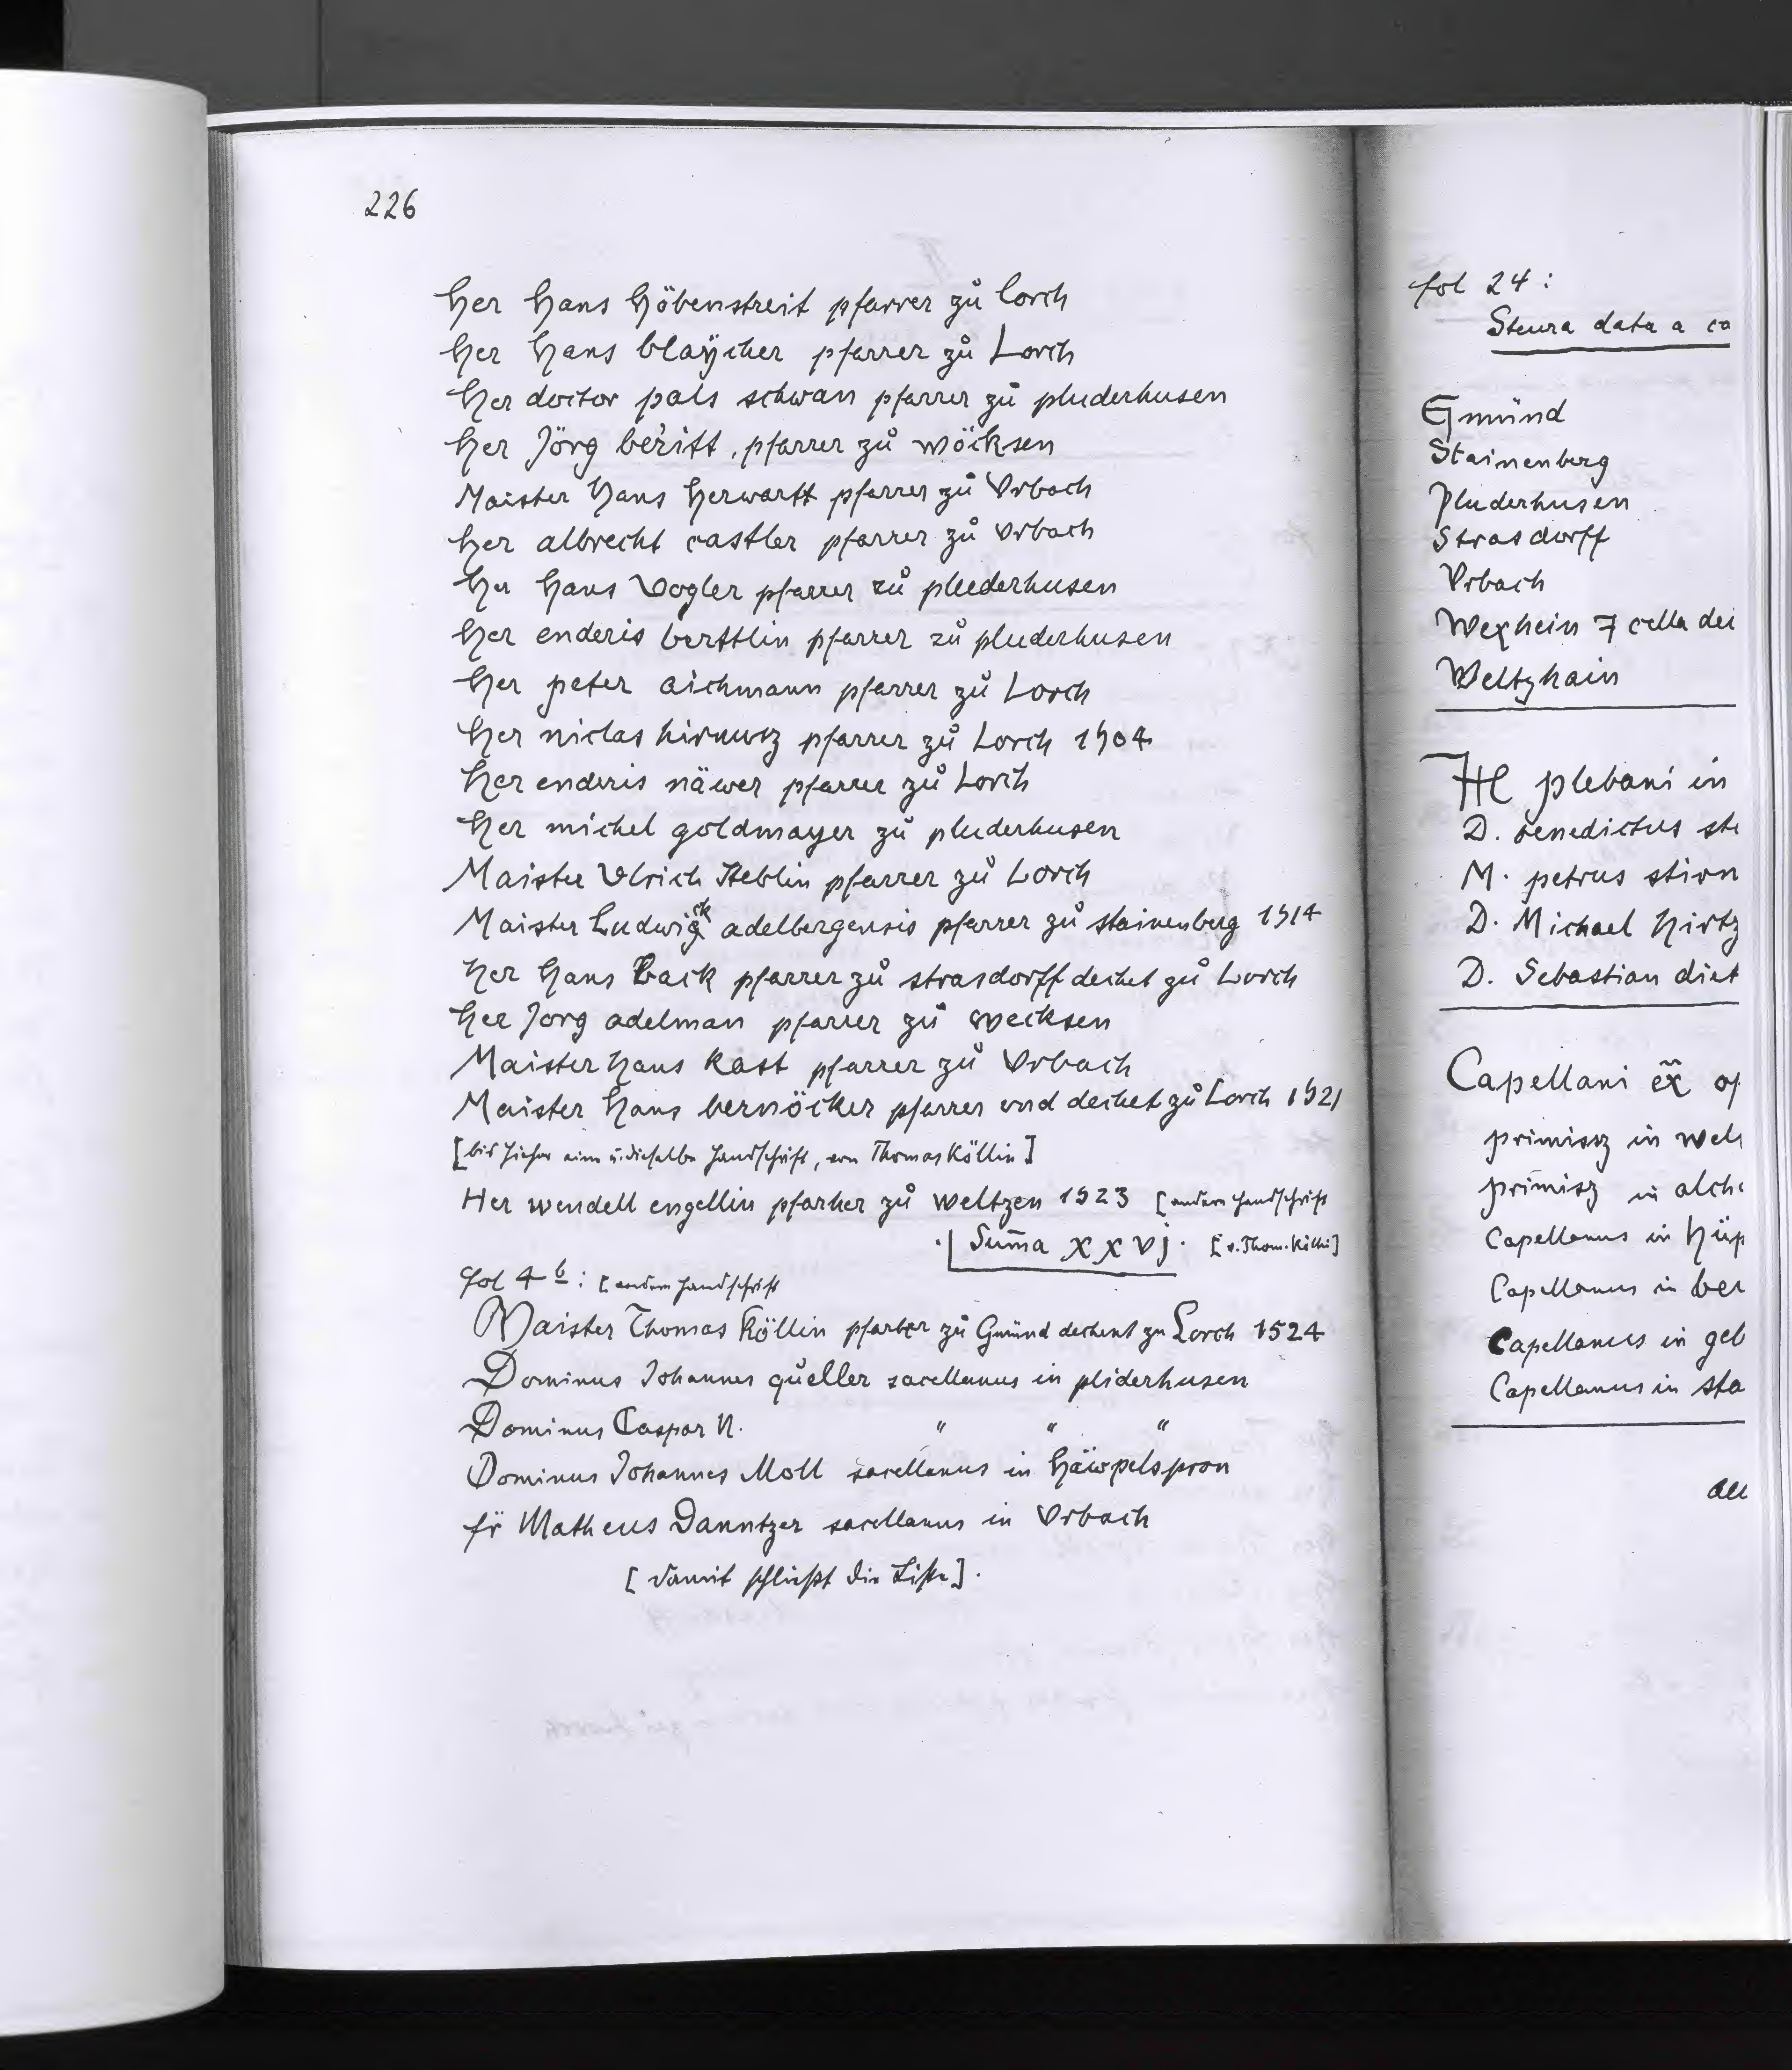 226
Her Hans Höbenstreit pfarrer zů lorch
her Hans blaÿcher pfarrer zů Lorch
Her doctor pals schwan pfarrer zů pluderhusen
her Jörg beritt, pfarrer zů wöcksen
Maister Hans Herwartt pfarrer zů Vrbach
her albrecht castler pfarrer zů vrbach
Her Hans Vogler pfarrer zů pluderhusen
her enderis berttlin pfarrer zů pluderhusen
her peter aichmann pfarrer zů Lorch
her niclas pfarrer zů Lorch 1504
her enderis näwer pfarrer zů Lorch
her michel goldmayer zů pluderhusen
Maister Vlrich pfarrer zů Lorch
Maister Ludwigck adelbergensis pfarrer zů stainenberg 1514
her Hans Back pfarrer zů strasdorff dechet zů Lorch
her Jorg adelman pfarrer zů wecksen
Maister Hans kast pfarrer zů Vrbach
Maister Hans bernöcker pfarrer vnd dechet zů Lorch 1521
[bis hieher eine u. dieselbe Handschrift, von Thomas Köllin]
Her wendell engellin pfarher zů weltzen 1523 [andere Handschrift
Sum̄a xxvj. [v. Thom. Köllin]
fol 4 b: [andere Handschrift
Maister Thomas Köllin pfarher zů Gmünd dechent zu Lorch 1524
Dominus Johannes qůeller sacellanus in pliderhusen
Dominus Caspar N. " " "
Dominus Johannes Moll sacellanus in Häwpelspron
fr̈ Matheus Danntzer sacellanus in Vrbach
[damit schließt die Liste].
fol 24:
Steura data a co
Gmünd
Stainenberg
Pluderhusen
Strasdorff
Vrbach
Wexhein 7 cella dei
Weltzhain
plebani in
D. benedictus ste
M. petrus stirn
D. Michael Hirtz
D. Sebastian diet
Capellani ex̃ op
primissz in wel
primisz in alch
Capellanus in Hüp
Capellanus in ber
Capellanus in geb
Capellanus in sta